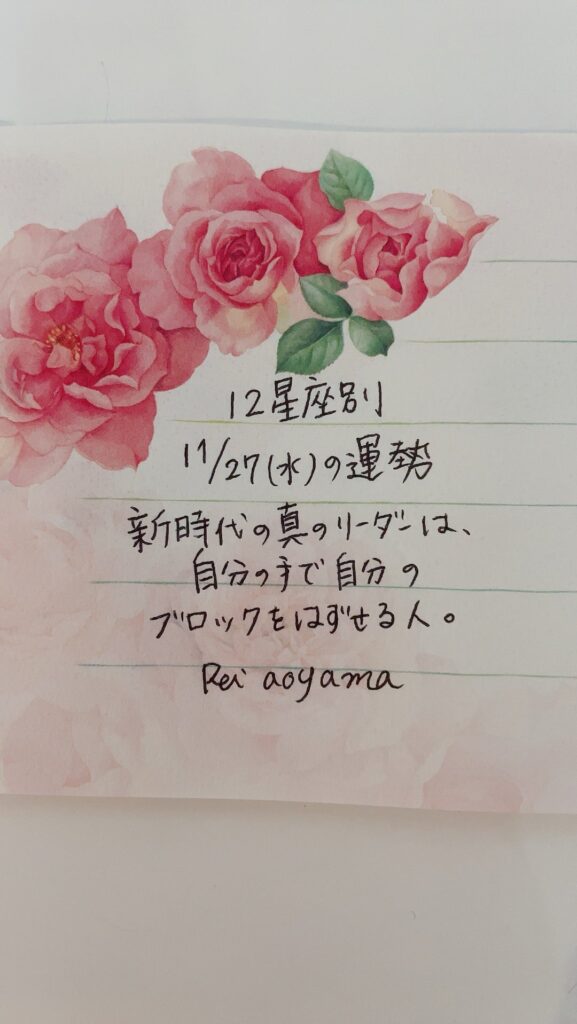 12星座別
11/27(水)の運勢
新時代の真のリーダーは、
自分の手で自分の
ブロックをはずせる人。
Rei aoyama